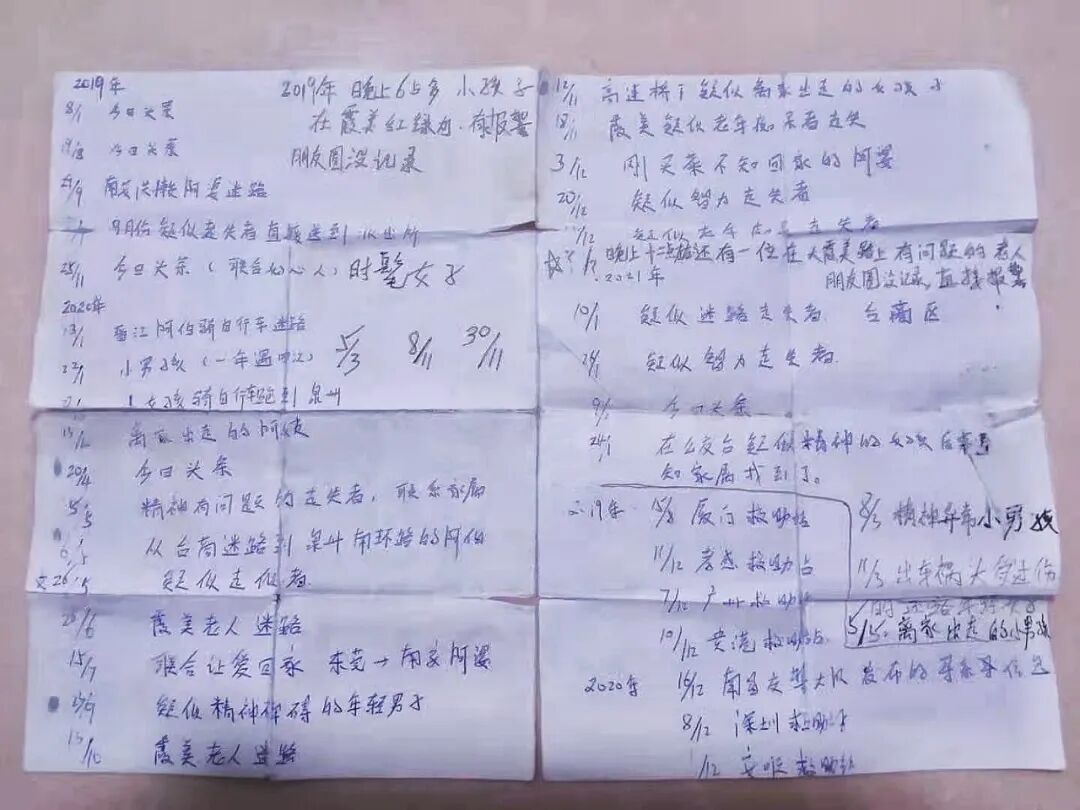 2019年
2019年 晚上6点多 小孩子
在霞美红绿灯. 有报警
朋友圈没记录
8/1 今日头条
19/8 今日头条
21/9 南安洪濑阿婆迷路
9月份疑似走失者直接送到派出所
25/11 今日头条 (联合好心人) 时髦女子
2020年
13/1 晋江阿伯骑自行车迷路
22/1 小男孩 (一年遇两次) 5/3 8/11 30/11
女孩骑自行车跑到泉州
13/12 离家出走的阿婆
20/4 今日头条
5/5 精神有问题的走失者, 联系家属
6/5 从台商迷路到泉州南环路的阿伯
26/5 疑似走失者.
20/6 霞美老人迷路
15/7 联合让爱回家 东莞→南安阿婆
13/9 疑似精神障碍的年轻男子
13/10 霞美老人迷路
12/11 高速桥下疑似离家出走的女孩子
18/11 霞美疑似老年痴呆者走失
3/12 刚买菜不知回家的阿婆
20/12 疑似智力走失者
/12 疑似老年痴呆走失者
晚上十二点钟还有一位在大霞美路上有问题的老人
朋友圈没记录, 直接报警
2021年
10/1 疑似迷路走失者. 台商区
28/1 疑似智力走失者.
9/ 今日头条
24/1 在公交台疑似精神的女孩后来通
知家属找到了。
2019年 15/8 厦门救助站
11/12 孝感救助站
7/12 广州救助站
10/12 贵港救助站
8/3 精神异常小男孩
11/3 出车祸大学生伤
5/5. 离家出走的小男孩
2020年 16/12 南昌交警大队发布的寻亲寻信息
8/12 深圳救助站
/12 安顺救助站